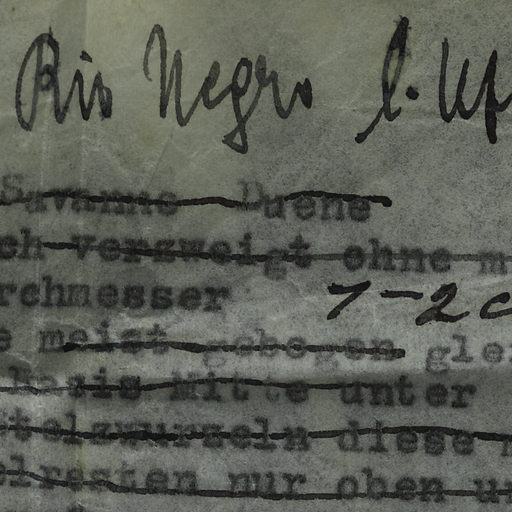 Rio Negro l. Uf
Savanne Duene
ch verzweigt ohne m
rchmesser 1-2c
e meist gebogen glei
basis Mitte unter
telzwurzeln diese
elresten nur oben un